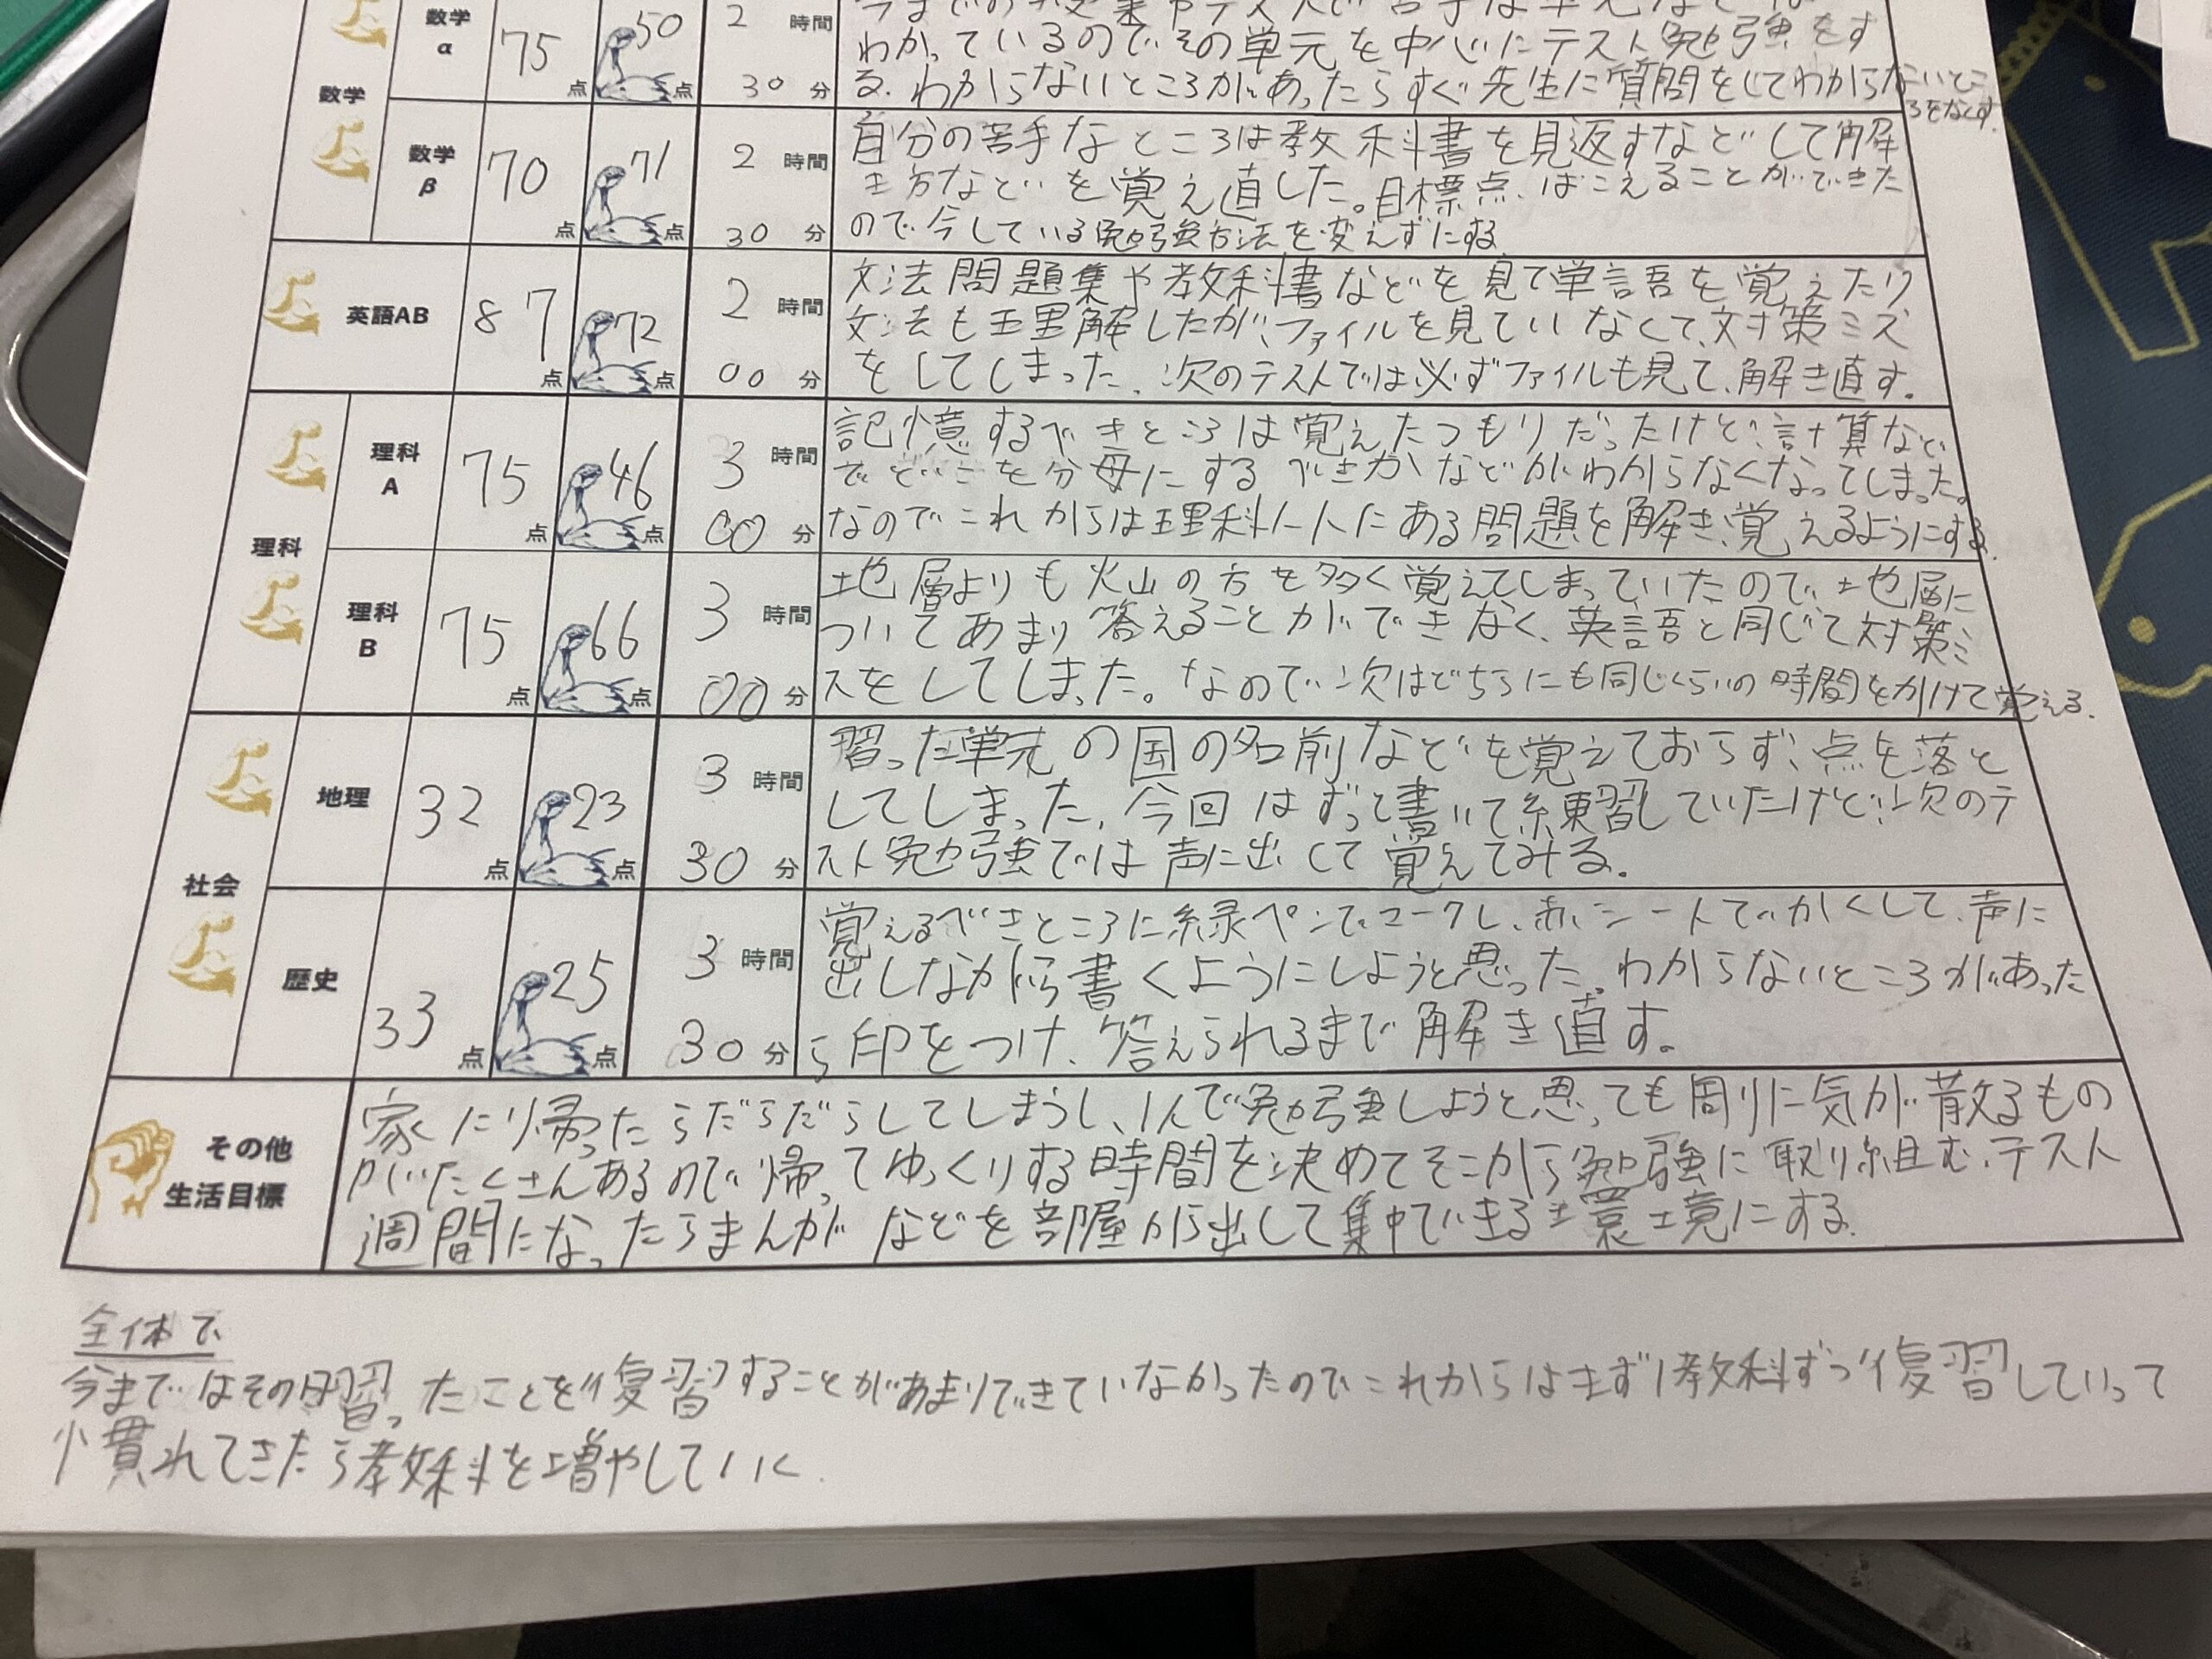 数学
数学
α
75
点
50
点
2
時間
30
分
わかっているのでその単元を中心にテスト勉強をす
る。わからないところがあったらすぐ先生に質問をしてわからないとこ
ろをなくす。
数学
β
70
点
71
点
2
時間
30
分
自分の苦手なところは教科書を見返すなどして解
き方などを覚え直した。目標点、はこえることができた
ので今している勉強方法を変えずにする
英語AB
87
点
72
点
2
時間
00
分
文法問題集や教科書などを見て単語を覚えたり
文法も理解したが、ファイルを見ていなくて、対策ミス
をしてしまった。次のテストでは必ずファイルも見て、解き直す。
理科
理科
A
75
点
46
点
3
時間
00
分
記憶するべきところは覚えたつもりだったけど、計算など
でどこを分母にするべきかなどがわからなくなってしまった。
なのでこれからは理科ノートにある問題を解き、覚えるようにする。
理科
B
75
点
66
点
3
時間
00
分
地層よりも火山の方を多く覚えてしまっていたので地層に
ついてあまり答えることができなく、英語と同じて対策ミ
スをしてしまった。なので次はどちらにも同じくらいの時間をかけて覚える。
社会
地理
32
点
23
点
3
時間
30
分
習った単元の国の名前などを覚えておらず、点を落と
してしまった。今回はずっと書いて練習していたけど、次のテ
スト勉強では声に出して覚えてみる。
歴史
33
点
25
点
3
時間
30
分
覚えるべきところに緑ペンでマークし、赤シートでかくして、声に
出しながら書くようにしようと思った。わからないところがあった
ら印をつけ、答えられるまで解き直す。
その他
生活目標
家に帰ったらだらだらしてしまうし、1人で勉強しようと思っても周りに気が散るもの
がたくさんあるので帰ってゆっくりする時間を決めてそこから勉強に取り組む。テスト
週間になったらまんがなどを部屋から出して集中できる環境にする。
全体で
今まではその日習ったことを復習することがあまりできていなかったのでこれからはまず1教科ずつ復習していって
慣れてきたら教科を増やしていく。